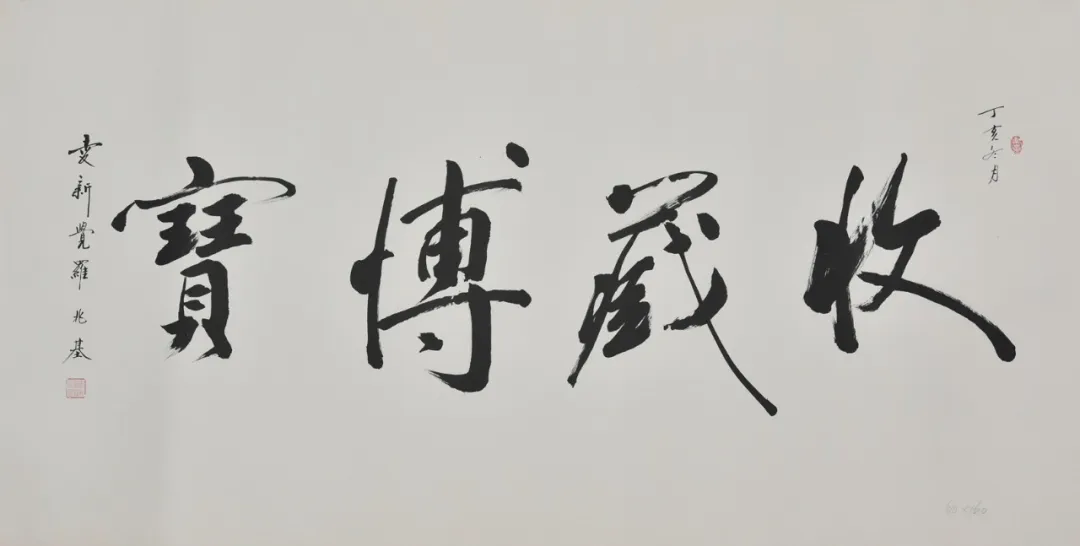 丁亥冬月
收藏博寶
愛新覺羅 兆基